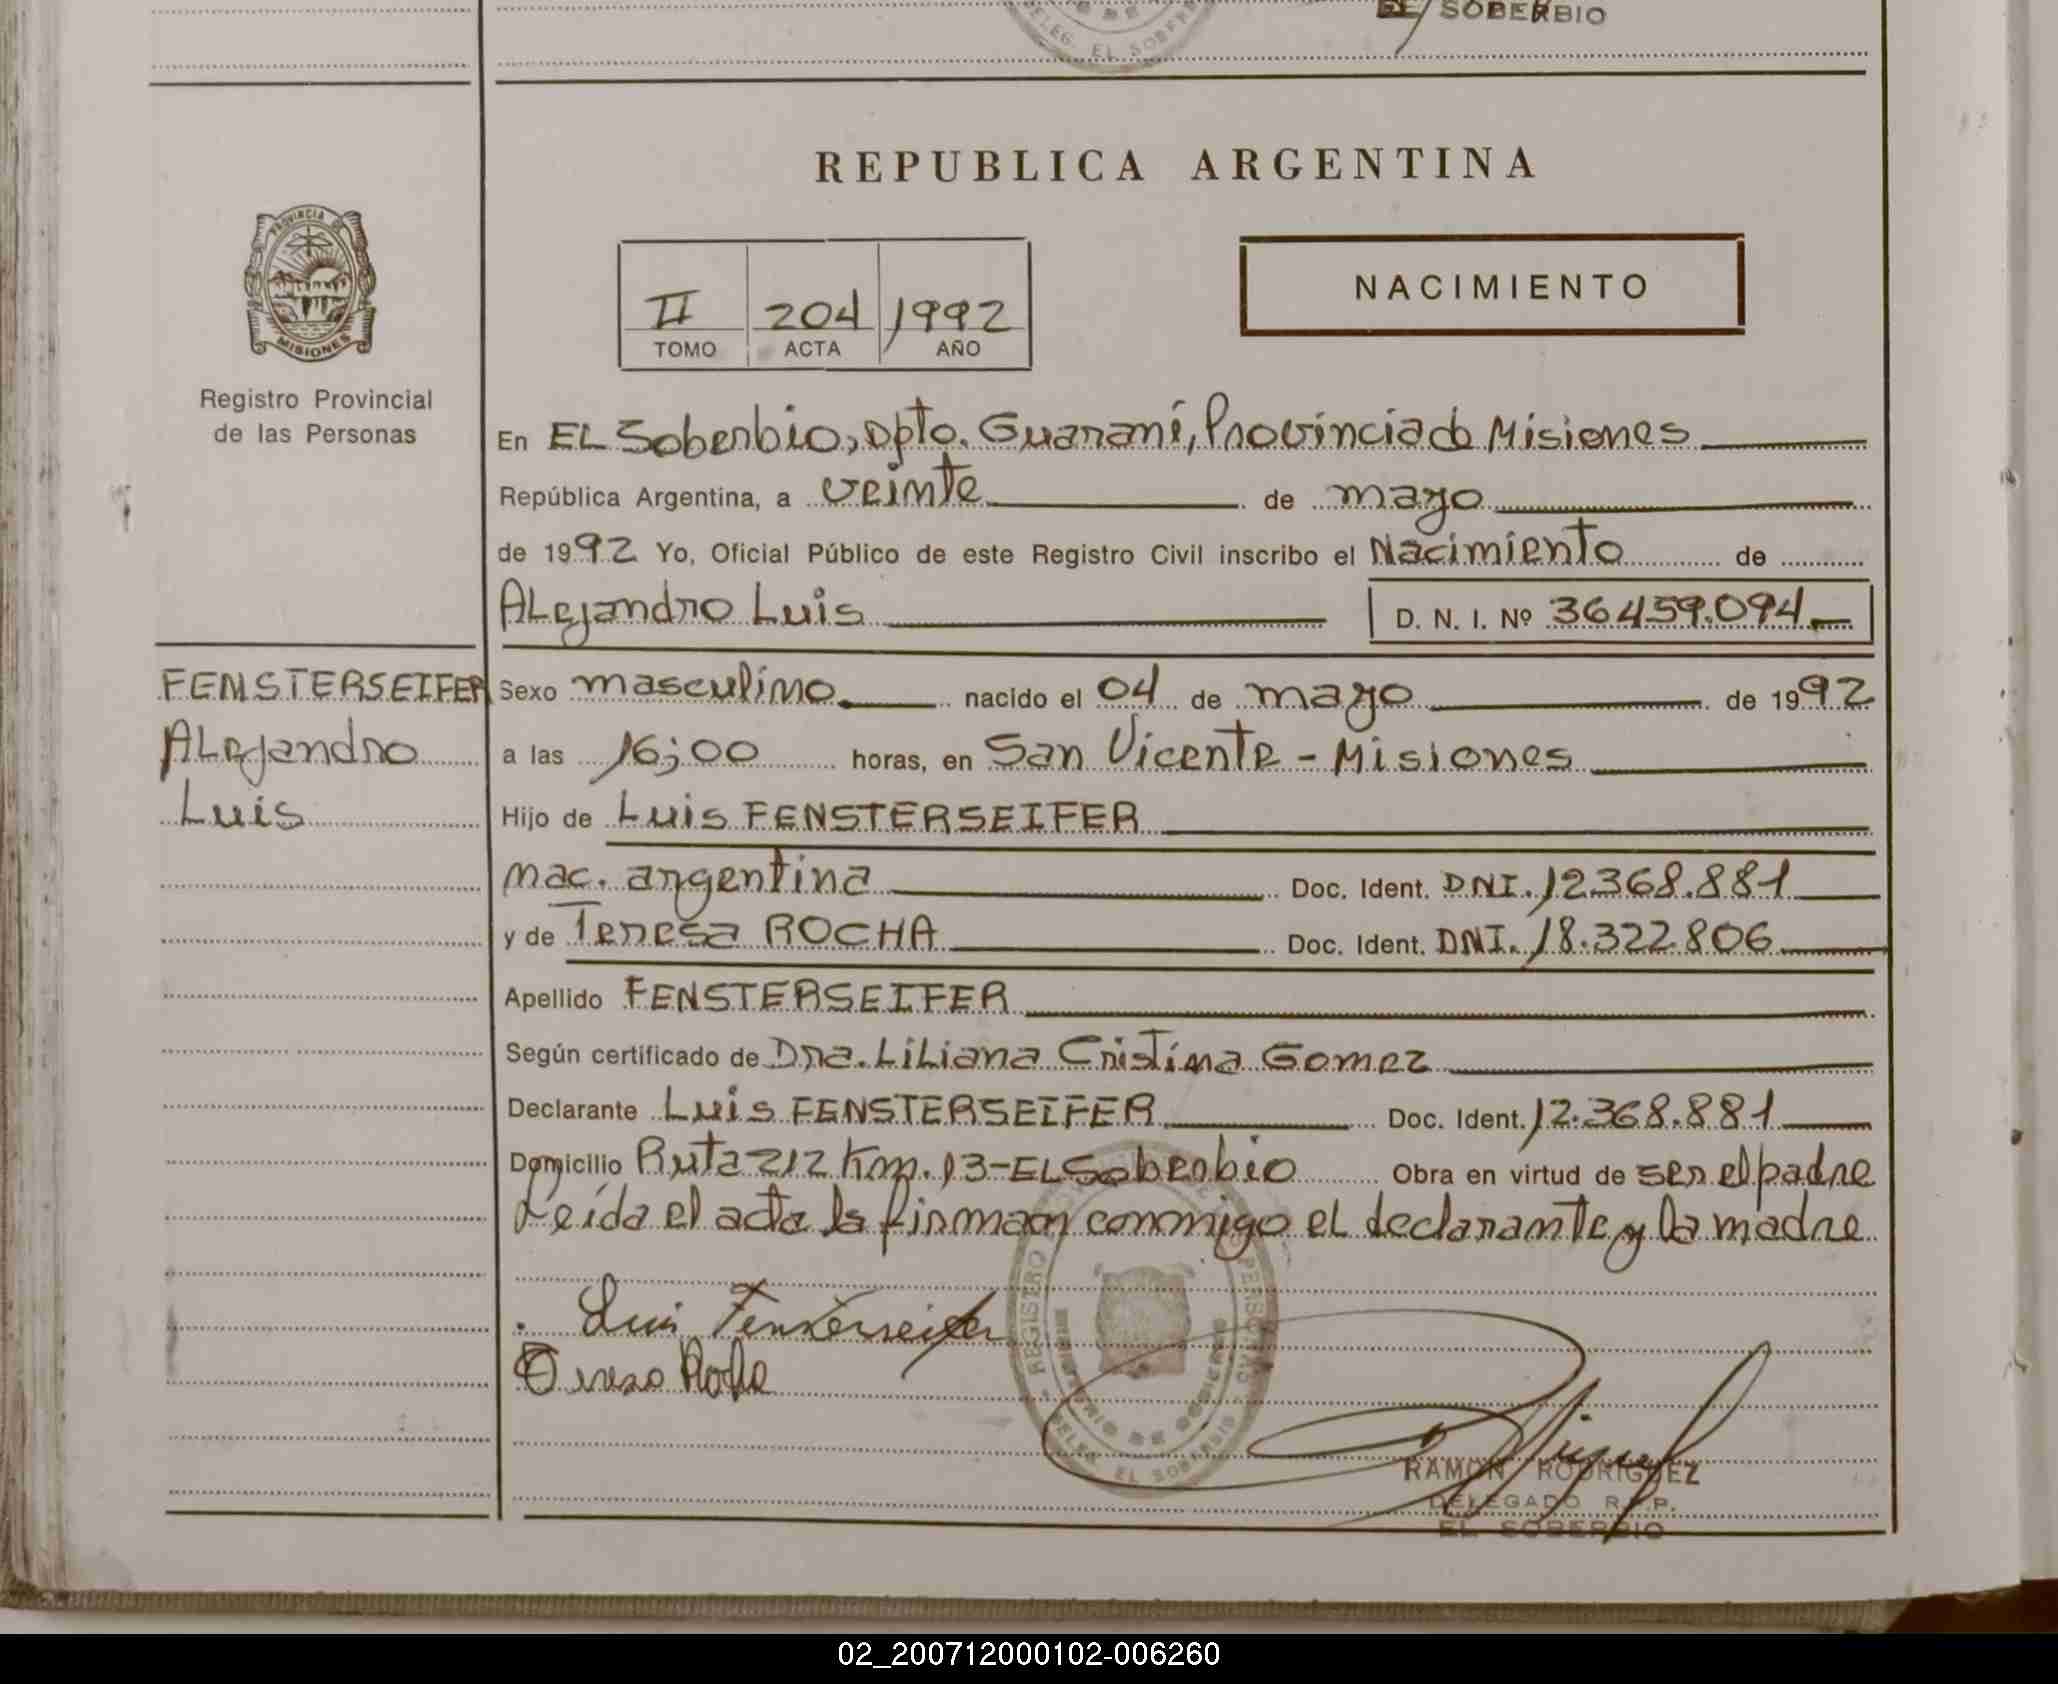 EL SOBERBIO
DELEG. EL SOBERBIO
REPUBLICA ARGENTINA
PROVINCIA DE
MISIONES
NACIMIENTO
II 204 1992
TOMO ACTA AÑO
Registro Provincial
de las Personas
En EL Soberbio, Dpto. Guaraní, Provincia de Misiones
República Argentina, a veinte de mayo
de 1992 Yo, Oficial Público de este Registro Civil inscribo el Nacimiento de
ALejandro Luis D. N. I. Nº 36459.094
FENSTERSEIFER
Alejandro
Luis
Sexo masculino nacido el 04 de mayo de 1992
a las 16;00 horas, en San Vicente - Misiones
Hijo de Luis FENSTERSEIFER
nac. argentina Doc. Ident. DNI. 12368.881
y de Teresa ROCHA Doc. Ident. DNI. 18.322.806
Apellido FENSTERSEIFER
Según certificado de Dra. Liliana Cristina Gomez
Declarante Luis FENSTERSEIFER Doc. Ident. 12.368.881
Domicilio Ruta 212 Km. 13-EL Soberbio Obra en virtud de ser el padre
Leída el acta la firman conmigo el declarante y la madre
Luis Fensterseifer
REGISTRO
EL SOBERBIO
RAMON RODRIGUEZ
DELEGADO R.P.P.
EL SOBERBIO
02_200712000102-006260